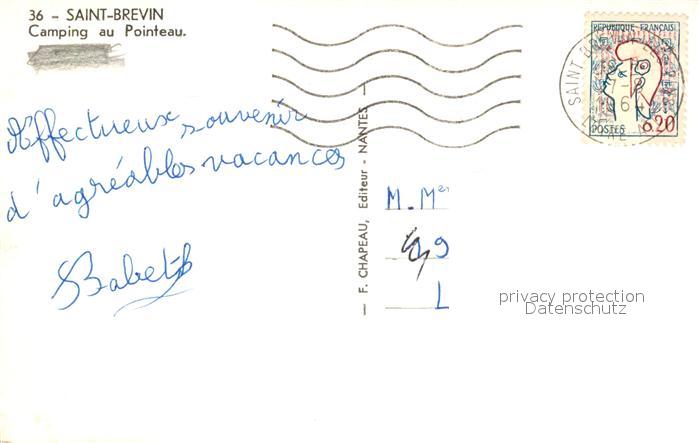 36 - SAINT-BREVIN
Camping au Pointeau.
REPUBLIQUE FRANÇAISE
POSTES 0.20
SAINT
Affectueux souvenir
d'agréables vacances
Babeth
— F. CHAPEAU, Editeur - NANTES —
M. Mer
9
L
privacy protection
Datenschutz